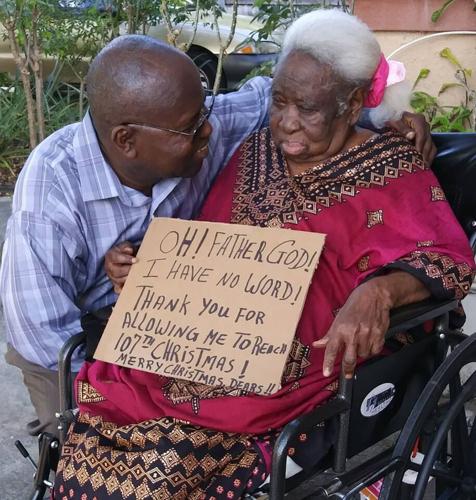 OH! FATHER GOD!
I HAVE NO WORD!
THANK YOU FOR
ALLOWING ME TO REACH
107TH CHRISTMAS!
MERRY CHRISTMAS, DEARS!!